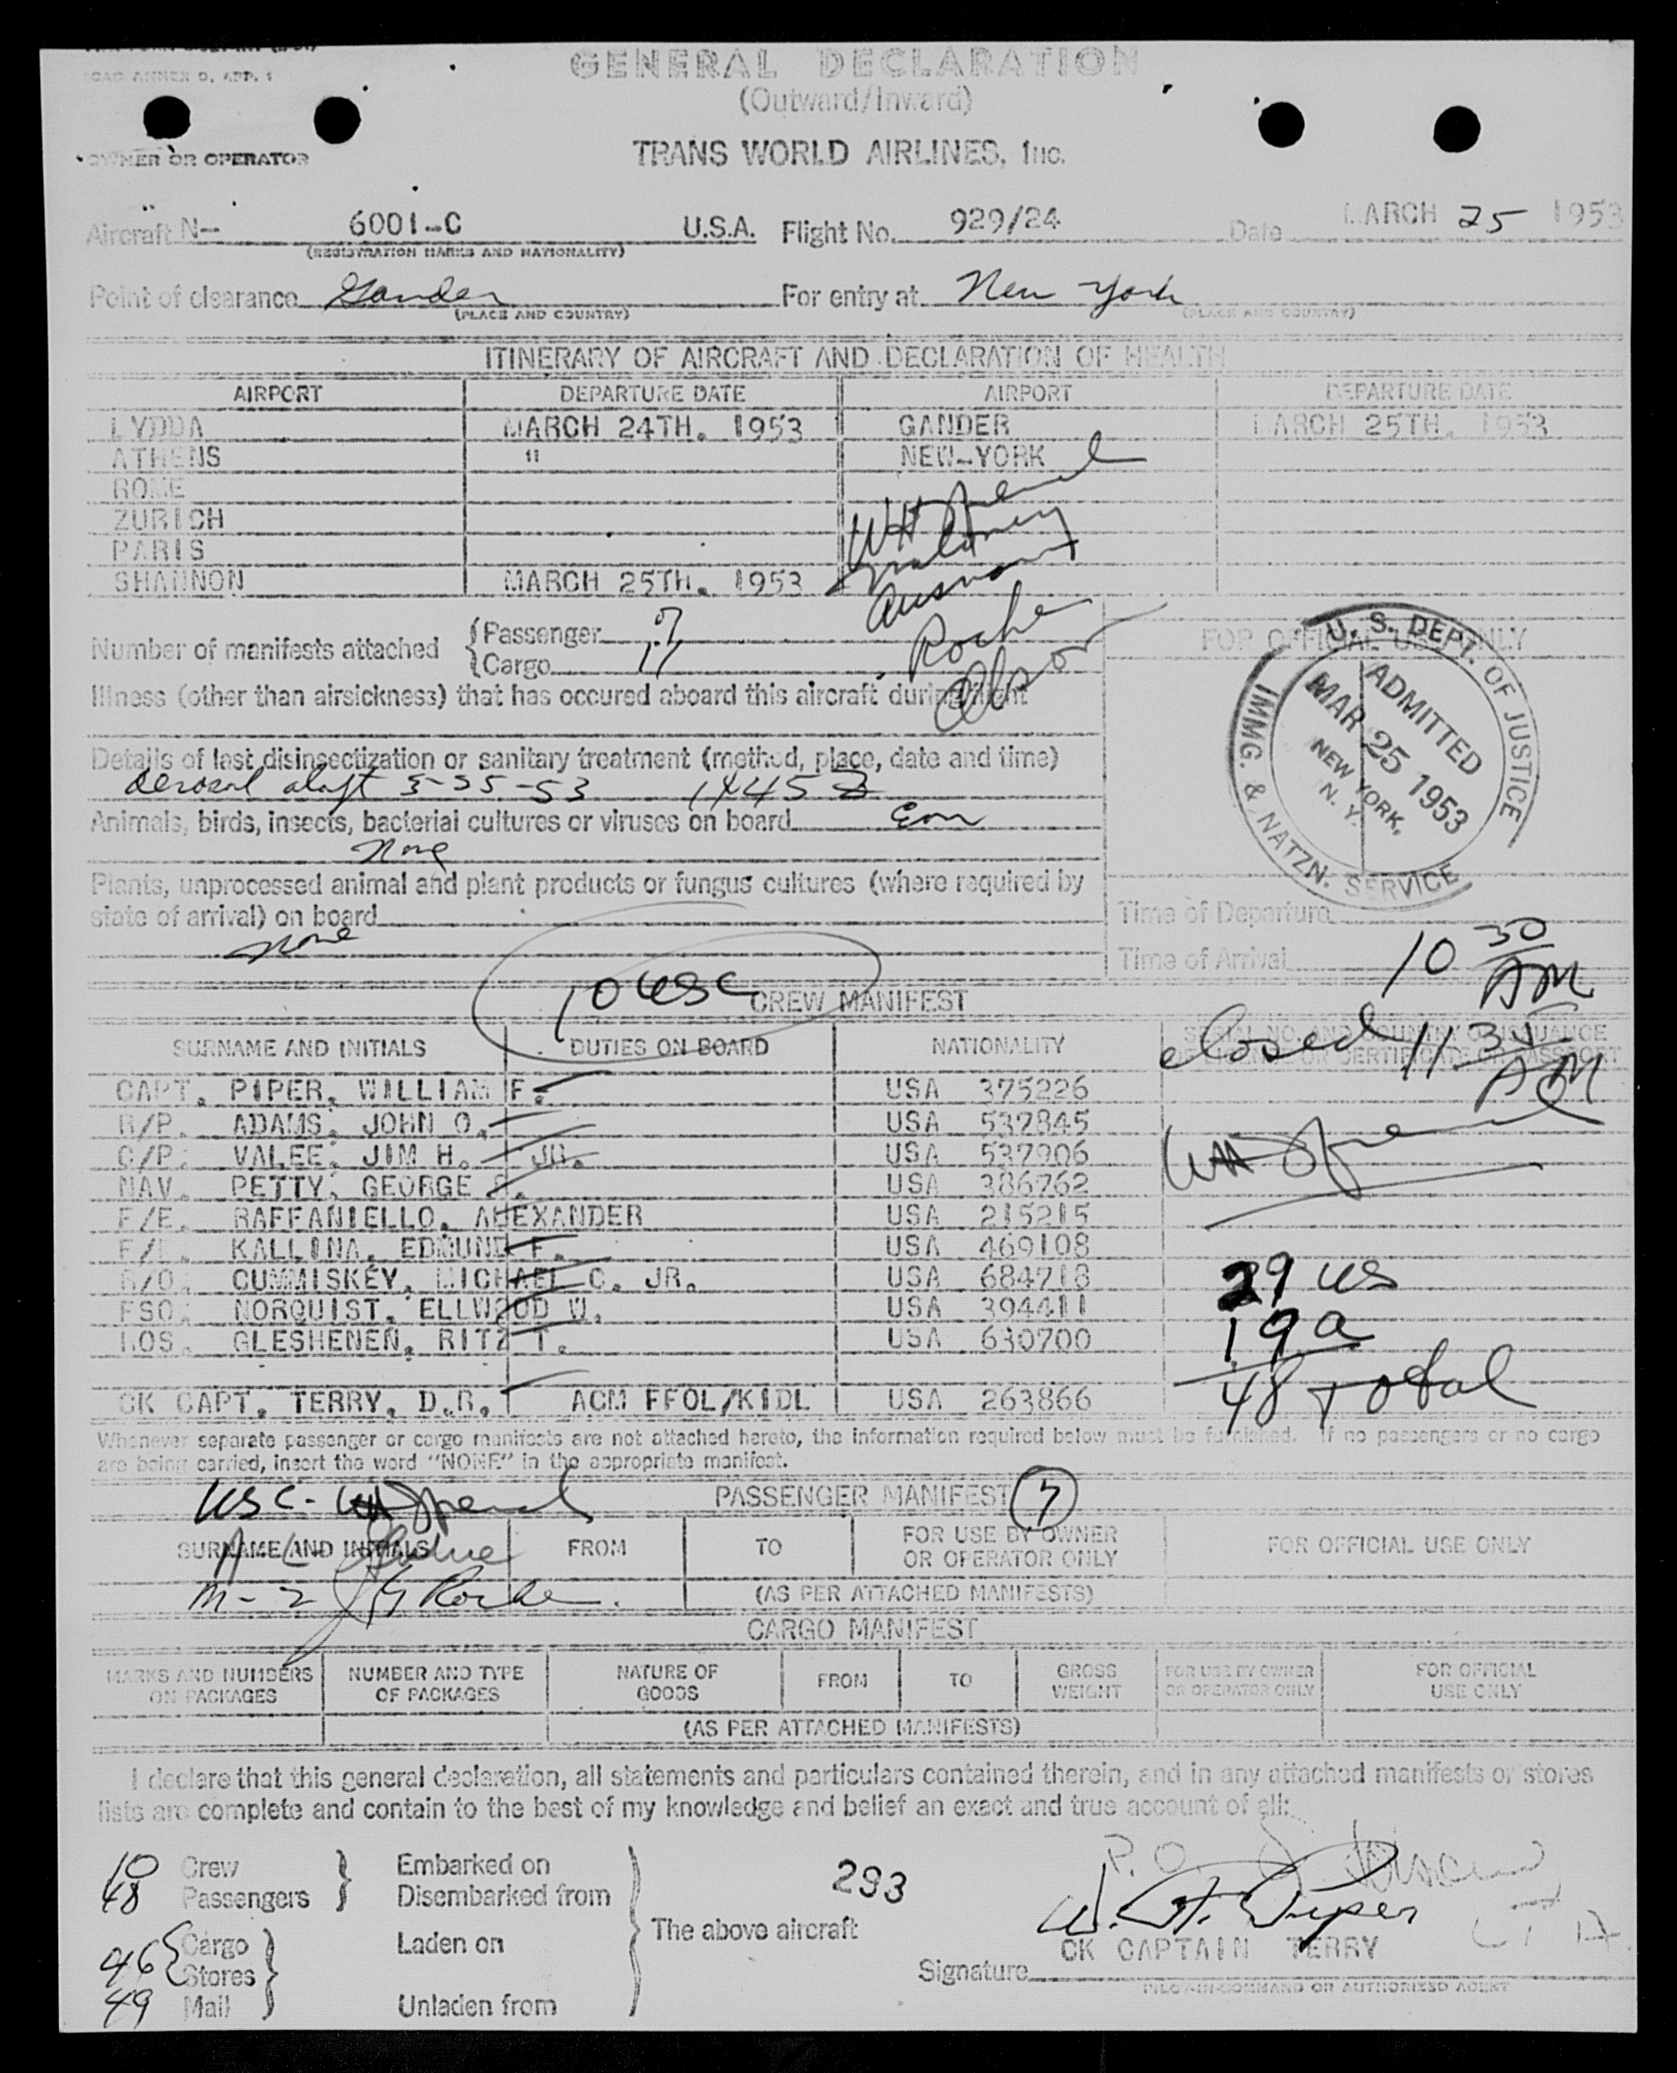 ICAO ANNEX 9, APP. 1
GENERAL DECLARATION
(Outward/Inward)
OWNER OR OPERATOR
TRANS WORLD AIRLINES, Inc.
Aircraft N- 6001-C U.S.A. Flight No. 929/24 Date MARCH 25 1953
(REGISTRATION MARKS AND NATIONALITY)
Point of clearance Gander For entry at New York
(PLACE AND COUNTRY) (PLACE AND COUNTRY)
ITINERARY OF AIRCRAFT AND DECLARATION OF HEALTH
AIRPORT DEPARTURE DATE AIRPORT DEPARTURE DATE
LYDDA MARCH 24TH. 1953 GANDER MARCH 25TH. 1953
ATHENS " NEW-YORK
ROME
ZURICH
PARIS
SHANNON MARCH 25TH. 1953
Roche
Number of manifests attached { Passenger
{ Cargo
FOR OFFICIAL USE ONLY
Illness (other than airsickness) that has occured aboard this aircraft during flight
Details of last disinsectization or sanitary treatment (method, place, date and time)
1445 Z
Animals, birds, insects, bacterial cultures or viruses on board
None
Plants, unprocessed animal and plant products or fungus cultures (where required by
state of arrival) on board
None
U. S. DEPT. OF JUSTICE
ADMITTED
MAR 25 1953
NEW YORK,
N. Y.
IMMG. & NATZN. SERVICE
Time of Departure
Time of Arrival 10 30 AM
10 USC
CREW MANIFEST
closed 11 35 AM
SURNAME AND INITIALS DUTIES ON BOARD NATIONALITY SERIAL NO. AND COUNTRY OF ISSUANCE
OF LICENSE OR CERTIFICATE OR PASSPORT
CAPT. PIPER, WILLIAM F. USA 375226
R/P. ADAMS, JOHN O. USA 537845
C/P. VALEE, JIM H. JR. USA 537906
NAV. PETTY, GEORGE USA 386762
F/E. RAFFANIELLO, ALEXANDER USA 215215
F/E. KALLINA, EDMUND F. USA 469108
R/O. CUMMISKEY, MICHAEL C. JR. USA 684718
FSO. NORQUIST, ELLWOOD W. USA 394411
HOS. GLESHENEN, RITZ T. USA 630700
CK CAPT. TERRY, D.R. ACM FFOL/KIDL USA 263866
29 US
19 A
48 Total
Whenever separate passenger or cargo manifests are not attached hereto, the information required below must be furnished. If no passengers or no cargo
are being carried, insert the word "NONE" in the appropriate manifest.
USC -
PASSENGER MANIFEST 7
SURNAME AND INITIALS FROM TO FOR USE BY OWNER OR OPERATOR ONLY FOR OFFICIAL USE ONLY
M-2 Roche
(AS PER ATTACHED MANIFESTS)
CARGO MANIFEST
MARKS AND NUMBERS ON PACKAGES NUMBER AND TYPE OF PACKAGES NATURE OF GOODS FROM TO GROSS WEIGHT FOR USE BY OWNER OR OPERATOR ONLY FOR OFFICIAL USE ONLY
(AS PER ATTACHED MANIFESTS)
I declare that this general declaration, all statements and particulars contained therein, and in any attached manifests or stores
lists are complete and contain to the best of my knowledge and belief an exact and true account of all:
10 Crew } Embarked on
48 Passengers } Disembarked from
293
The above aircraft
46 { Cargo } Laden on
Stores
49 Mail } Unladen from
W. F. Piper
CK CAPTAIN TERRY
Signature
PILOT-IN-COMMAND OR AUTHORIZED AGENT